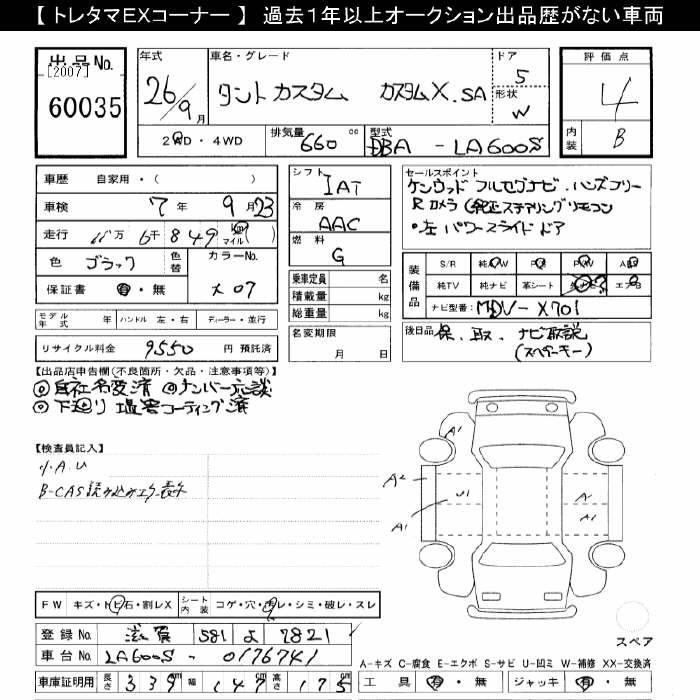 【 トレタマEXコーナー 】 過去1年以上オークション出品歴がない車両
出品No.
[2007]
60035
年式
26/9月
車名・グレード
タント カスタム カスタムX.SA
ドア
5
形状
W
評価点
4
内装
B
2WD・4WD
排気量
660 cc
型式
DBA - LA600S
車歴 自家用・( )
車検 7年 9月23
走行 11万 6千 849 km マイル ( )
色 ブラック 色替
カラーNo.
X07
保証書 有・無
モデル年式 年 ハンドル 左・右 ディーラー・並行
リサイクル料金 9550 円 預託済
シフト
IAT
冷房
AAC
燃料
G
乗車定員 名
積載量 kg
総重量 kg
名変期限
月 日
セールスポイント
ケンウッド フルセグナビ.ハンズフリー
Rカメラ(純正ステアリングリモコン
・左 パワースライド ドア
装備品
S/R 純AW P/S P/W ABS
純TV 純ナビ 革シート エアB
ナビ型番: MDV-X701
後日品 保.取.ナビ取説
(スペアーキー)
【出品店申告欄(不良箇所・欠品・注意事項等)】
◎自社名変済 ◎ナンバー応談
◎下廻り 塩害コーティング済
【検査員記入】
小.A.U
B-CAS読み込みエラー表示
A1
A2
U1
A1
A-
A1
FW キズ・トビ石・割レX
シート内装 コゲ・穴・汚レ・シミ・破レ・スレ
登録No. 滋賀 581 よ 7821
車台No. LA600S - 0176741
車庫証明用 長さ 339 cm 幅 147 cm 高さ 175 cm
スペア
A-キズ C-腐食 E-エクボ S-サビ U-凹ミ W-補修 XX-交換済
工具 有・無 ジャッキ 有・無